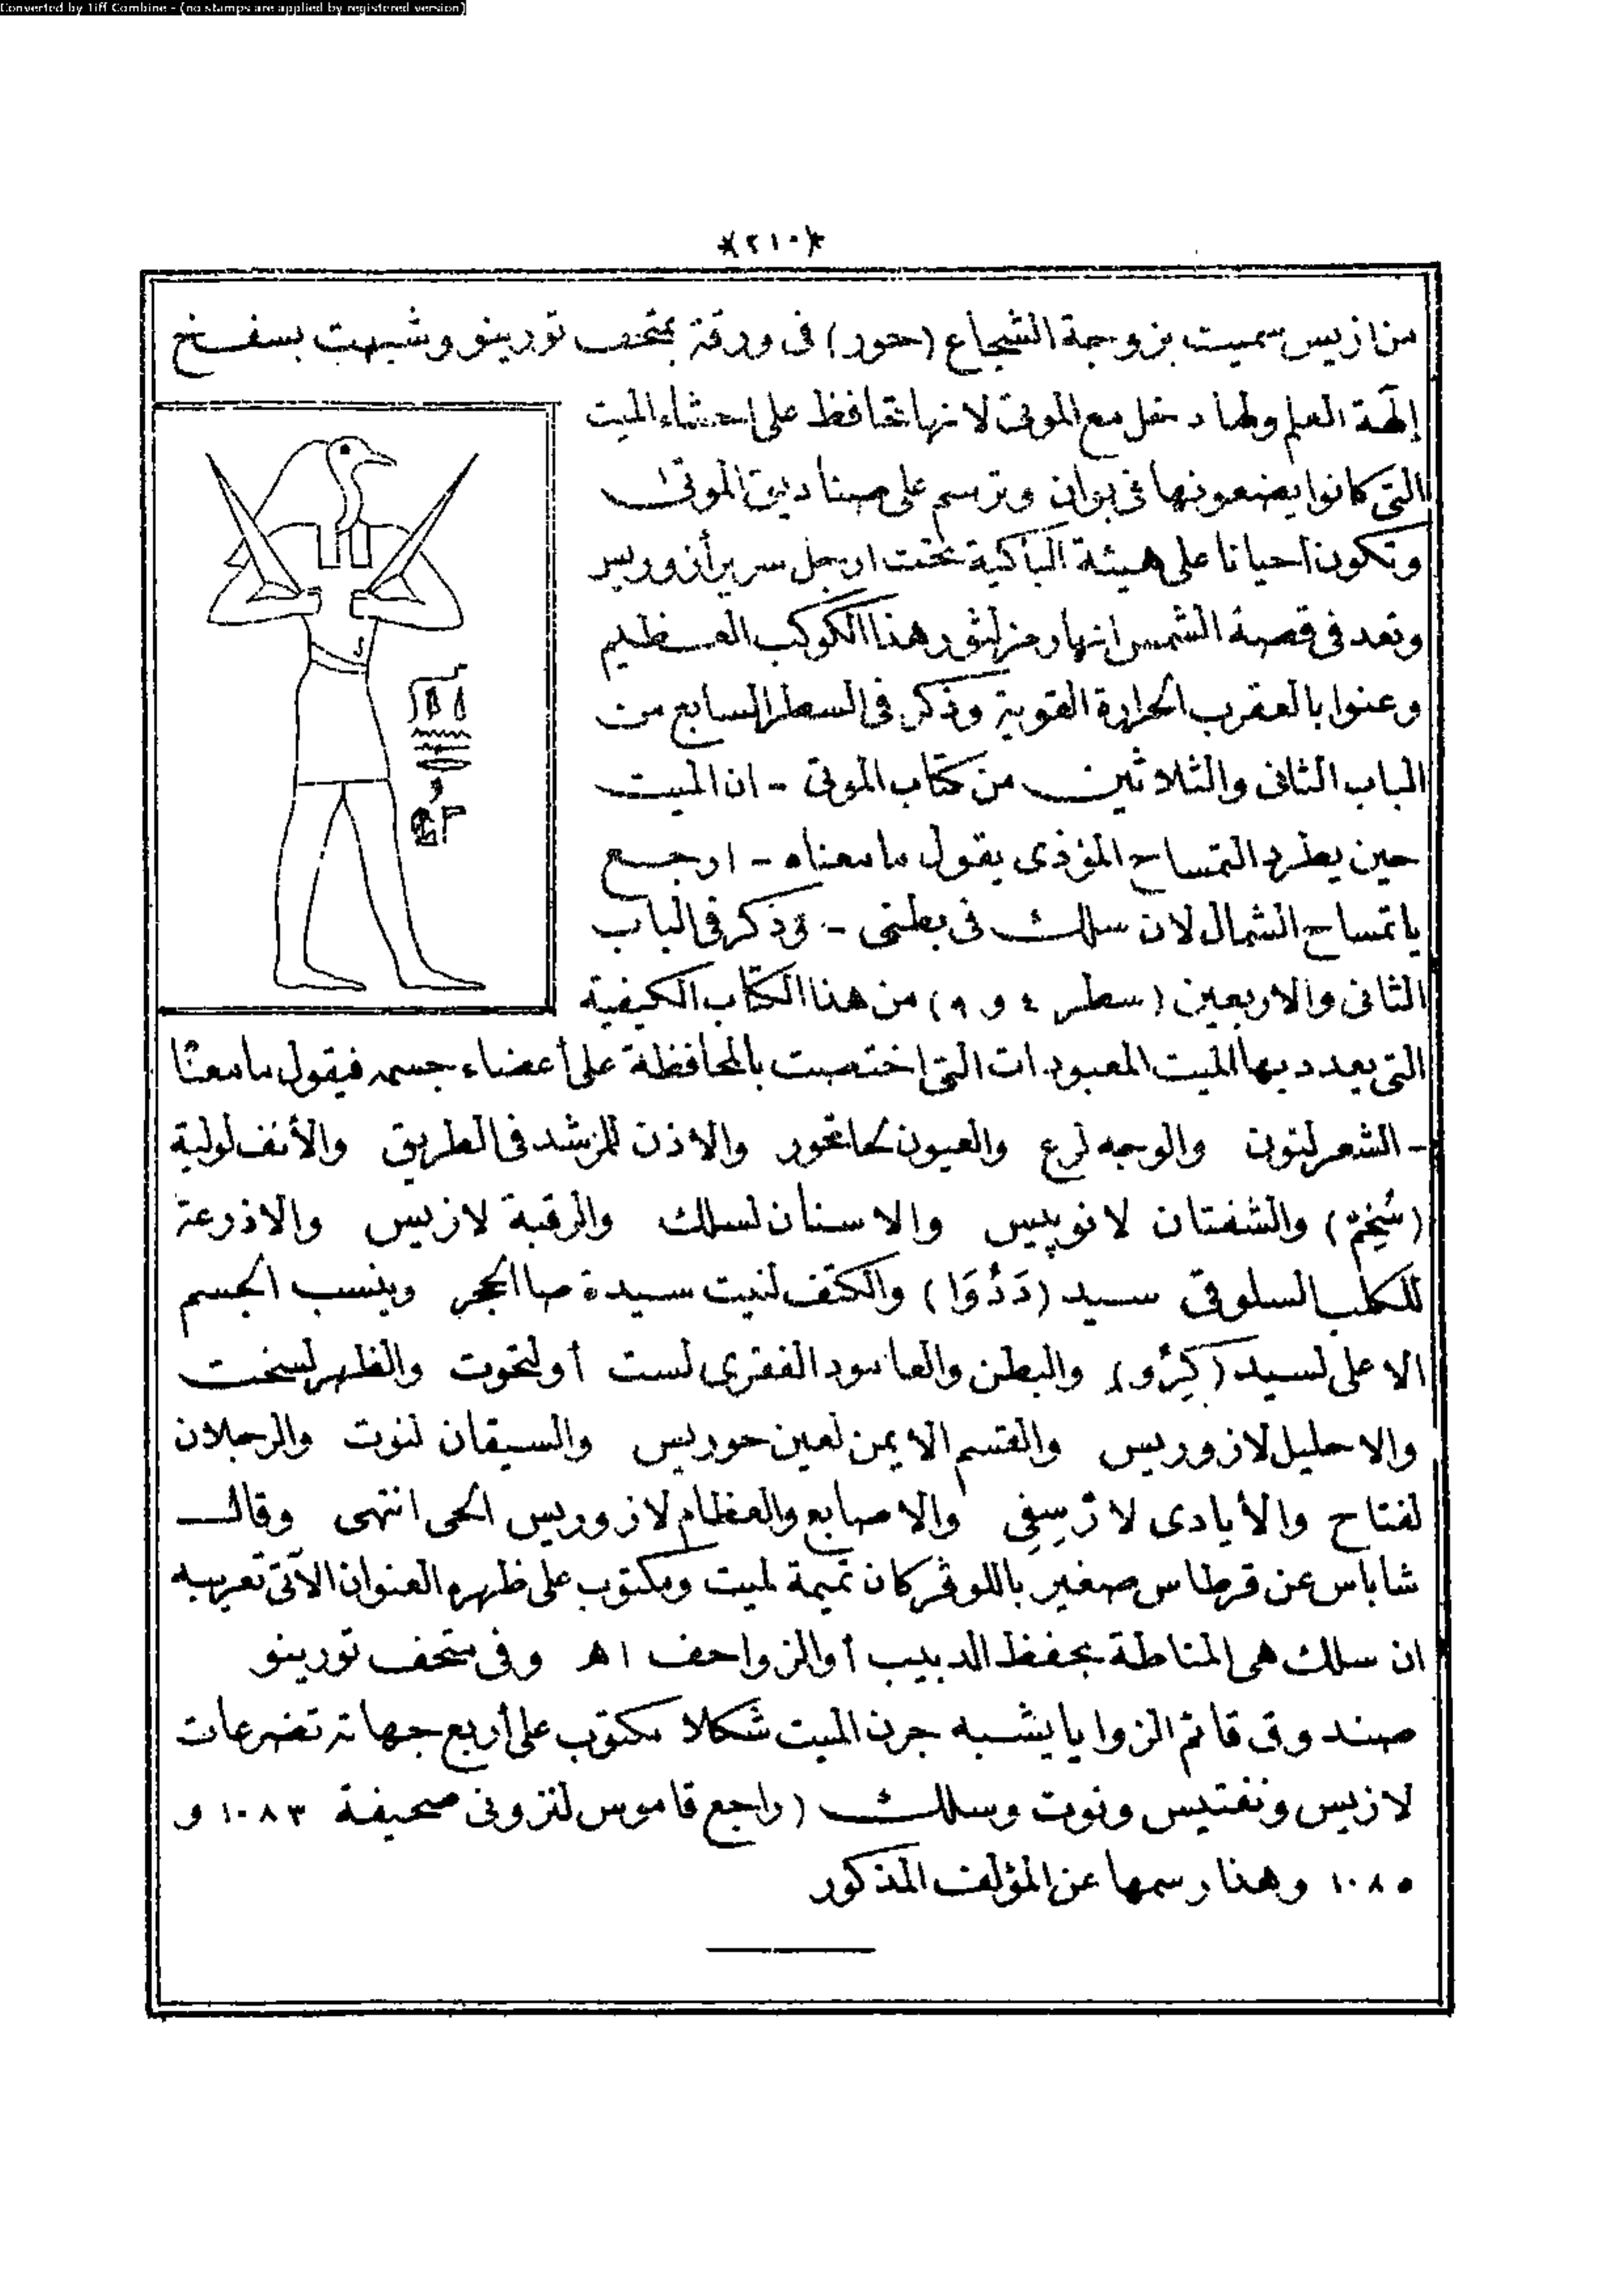 Converted by Tiff Combine - (no stamps are applied by registered version)
*(٢١٠)*
من ازيس سميت بزوجة الشجاع (حور) فى ورقة بمتحف تورينو وشبهت بسفخ
إلهة العلم ولها دخل مع الموتى لانها تحافظ على احشاء الميت
التى كانوا يضعونها فى بوان وترسم على صناديق الموتى
وتكون احيانا على هيئة الباكية تحت ارجل سرير أزوريس
وتعد فى قصة الشمس انها رمز لنور هذا الكوكب العظيم
وعنوا بالعقرب الحرارة القوية وذكر فى السطر السابع من
الباب الثانى والثلاثين من كتاب الموتى - ان الميت
حين يطرد التمساح المؤذى يقول ما معناه - ارجع
ياتمساح الشمال لان سلك فى بطنى - وذكر فى الباب
الثانى والاربعين (سطر ٤ و ٩) من هذا الكتاب الكيفية
التى يعدد بها الميت المعبودات التى اختصت بالمحافظة على أعضاء جسمه فيقول ما معنا
- الشعر لنون والوجه لرع والعيون لحاتحور والاذن للمرشد فى الطريق والأنف لولية
(سُخِمْ) والشفتان لانوبيس والاسنان لسلك والرقبة لازيس والاذرعة
للكلب السلوقى سيد (دَدُوَا) والكتف لنيت سيدة صا الحجر وينسب الجسم
الاعلى لسيد (كِرْو) والبطن والعامود الفقرى لست أو لتحوت والظهر لسخت
والاحليل لازوريس والقسم الايمن لعين حوريس والسيقان لنوت والرجلان
لفتاح والأيادى لارْسِفِى والاصابع والعظام لازوريس الحى انتهى وقال
شاباس عن قرطاس صغير باللوڤر كان تميمة لميت ومكتوب على ظهره العنوان الآتى تعريبه
ان سلك هى المناطة بحفظ الدبيب أو الزواحف اه وفى متحف تورينو
صندوق قائم الزوايا يشبه جرن الميت شكلا مكتوب على أربع جهاته تضرعات
لازيس ونفتيس ونوت وسلك (راجع قاموس لنزونى صحيفة ١٠٨٣ و
١٠٨٥ وهذا رسمها عن المؤلف المذكور